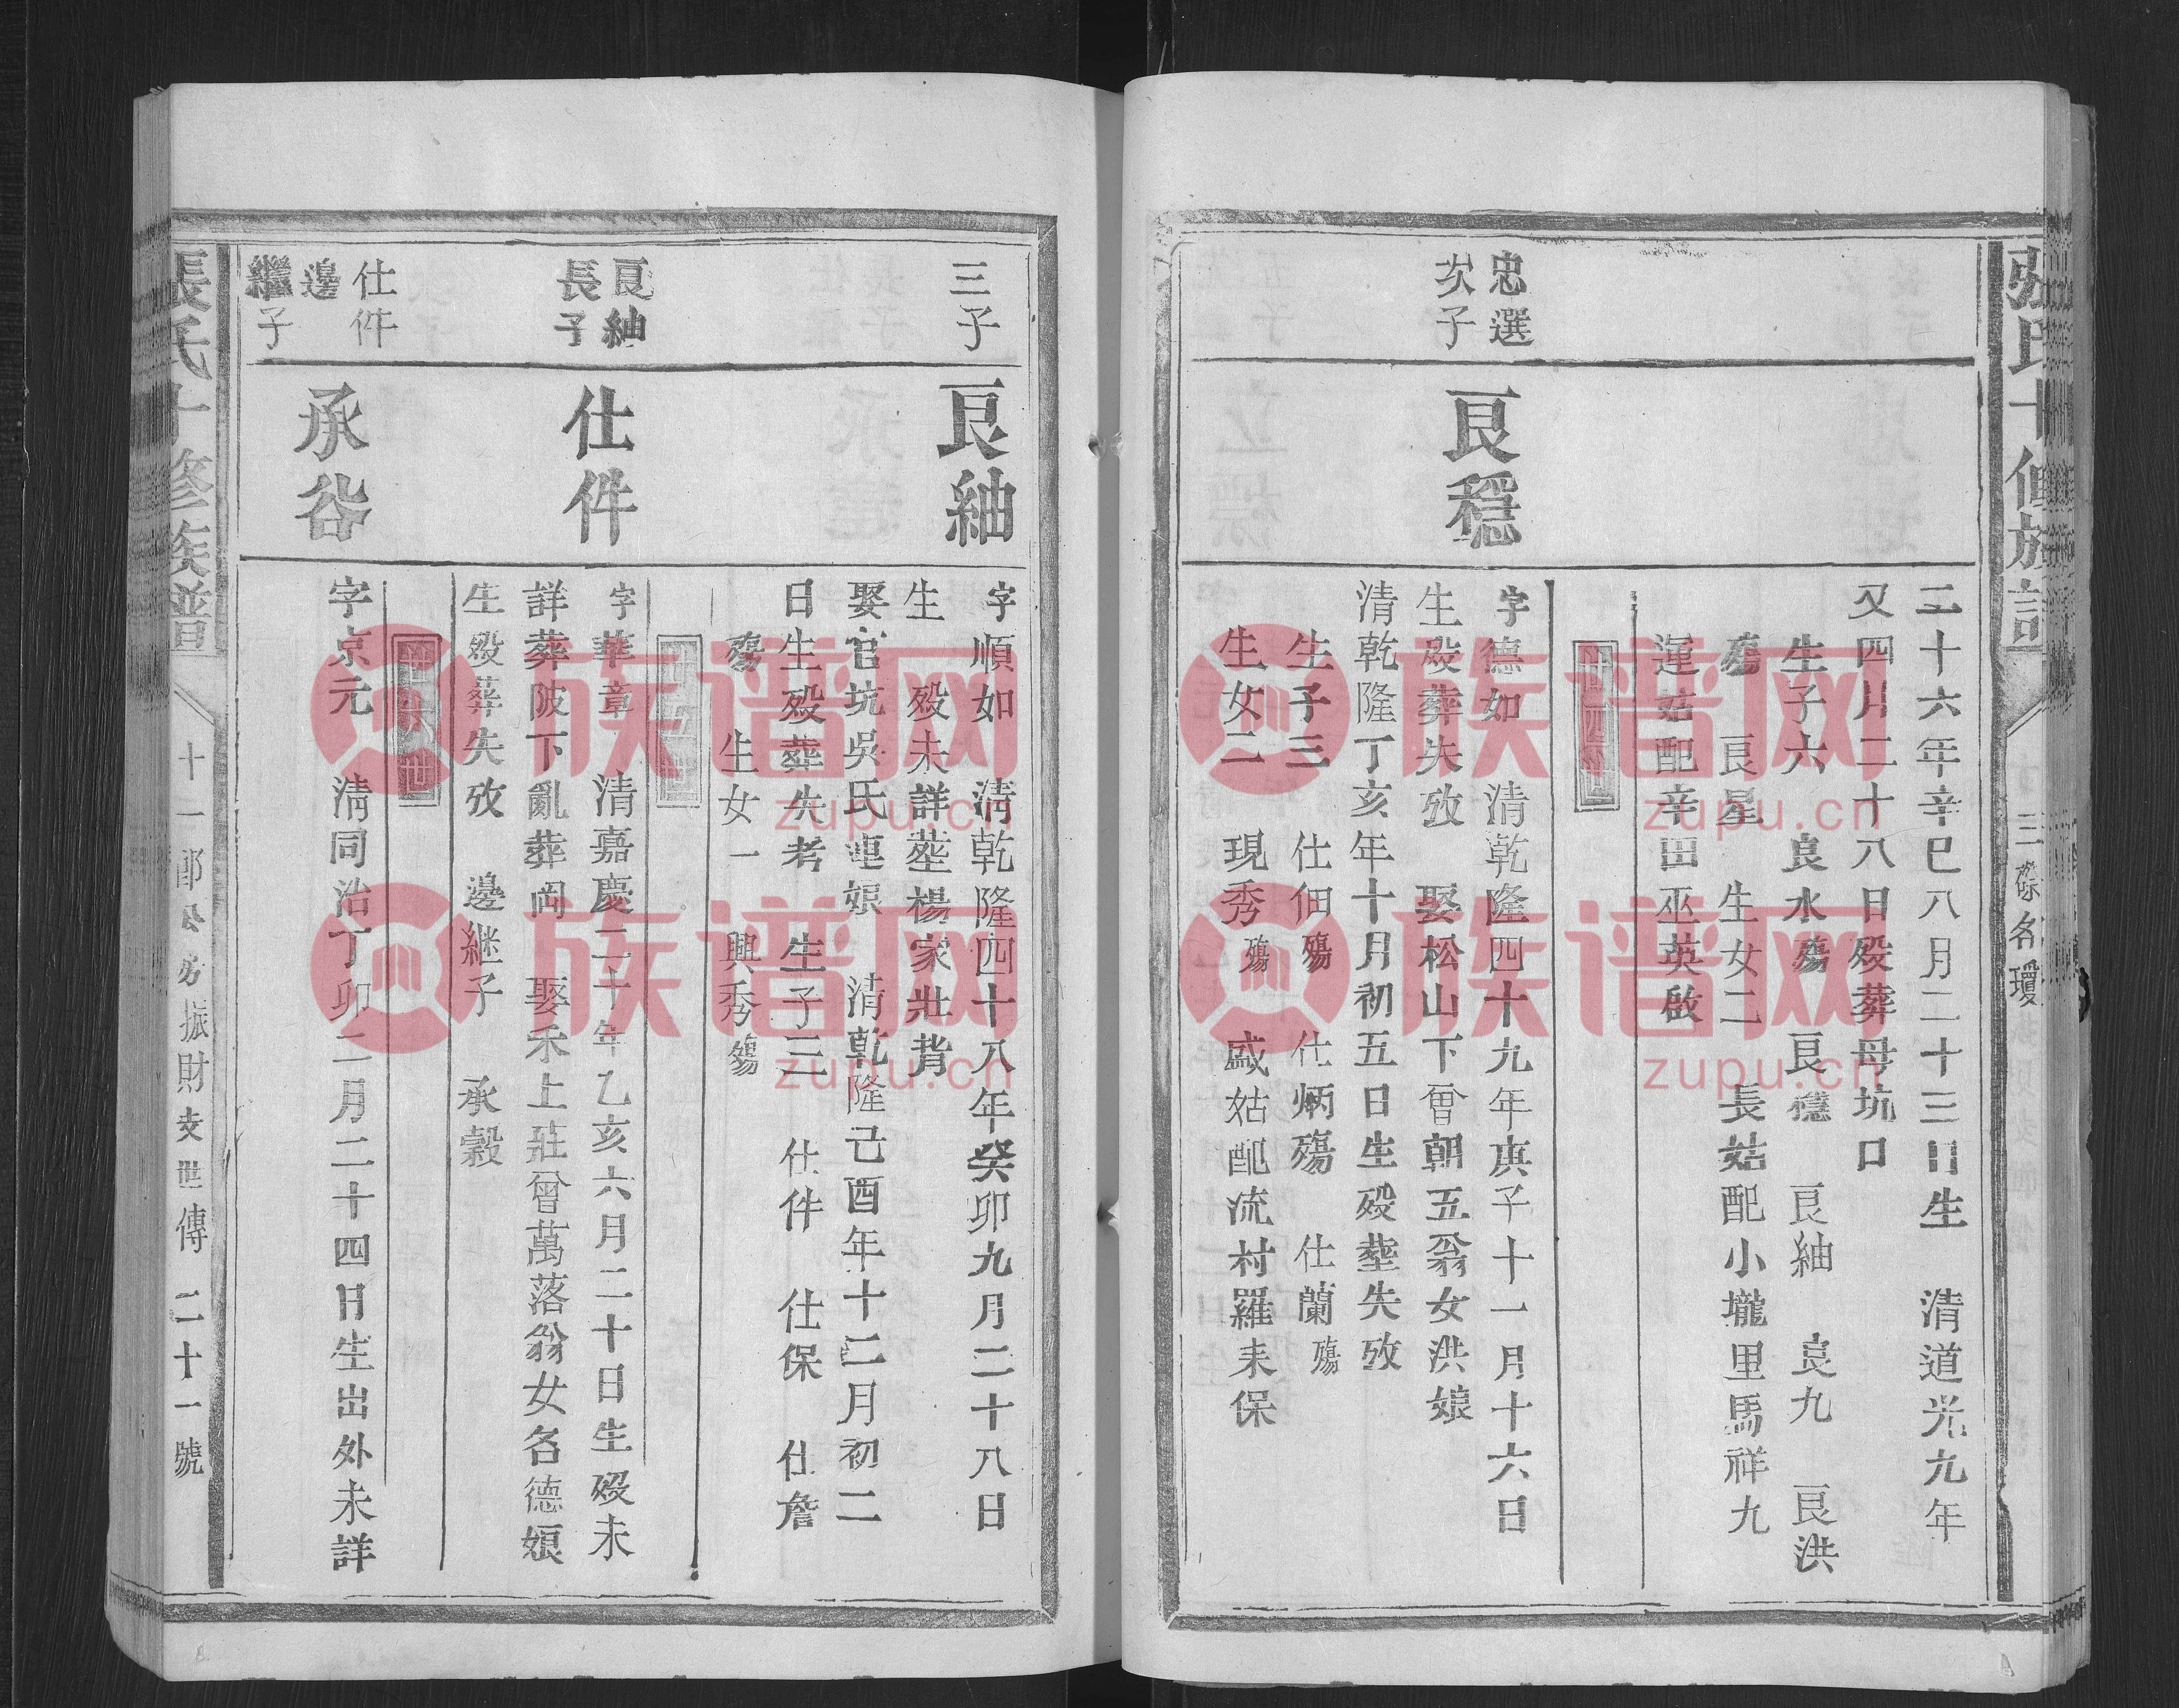 張氏十修族譜
三碌名瓊
二十六年辛巳八月二十三日生 清道光九年
又四月二十八日殁葬母坑口
生子六 良水殤 良穩 良紬 良九 良洪
殤 良星 生女二 長姑配小壠里馬祥九
運姑配辛田巫英啟
廿四世
忠選
次子
良穩
字德如 清乾隆四十九年庚子十一月十六日
生殁葬失攷 娶松山下曾朝五翁女洪娘
清乾隆丁亥年十月初五日生殁塟失攷
生子三 仕佃殤 仕炳殤 仕蘭殤
生女二 現秀殤 威姑配流村羅未保
三子
良紬
字順如 清乾隆四十八年癸卯九月二十八日
生 殁未詳塟楊家壯背
娶官坑吳氏連娘 清乾隆己酉年十二月初二
日生殁葬失考 生子三 仕件 仕保 仕詹
殤 生女一 興秀殤
廿五世
良紬
長子
仕件
字華章 清嘉慶二十年乙亥六月二十日生殁未
詳葬陂下亂葬岡 娶禾上莊曾萬落翁女名德娘
生殁葬失攷 邊継子 承穀
廿六世
仕件
邊
繼子
承谷
字京元 清同治丁卯二月二十四日生出外未詳
張氏十修族譜
十一郎公房振財支世傳 二十一號
族谱网
zupu.cn
族谱网
zupu.cn
族谱网
zupu.cn
族谱网
zupu.cn